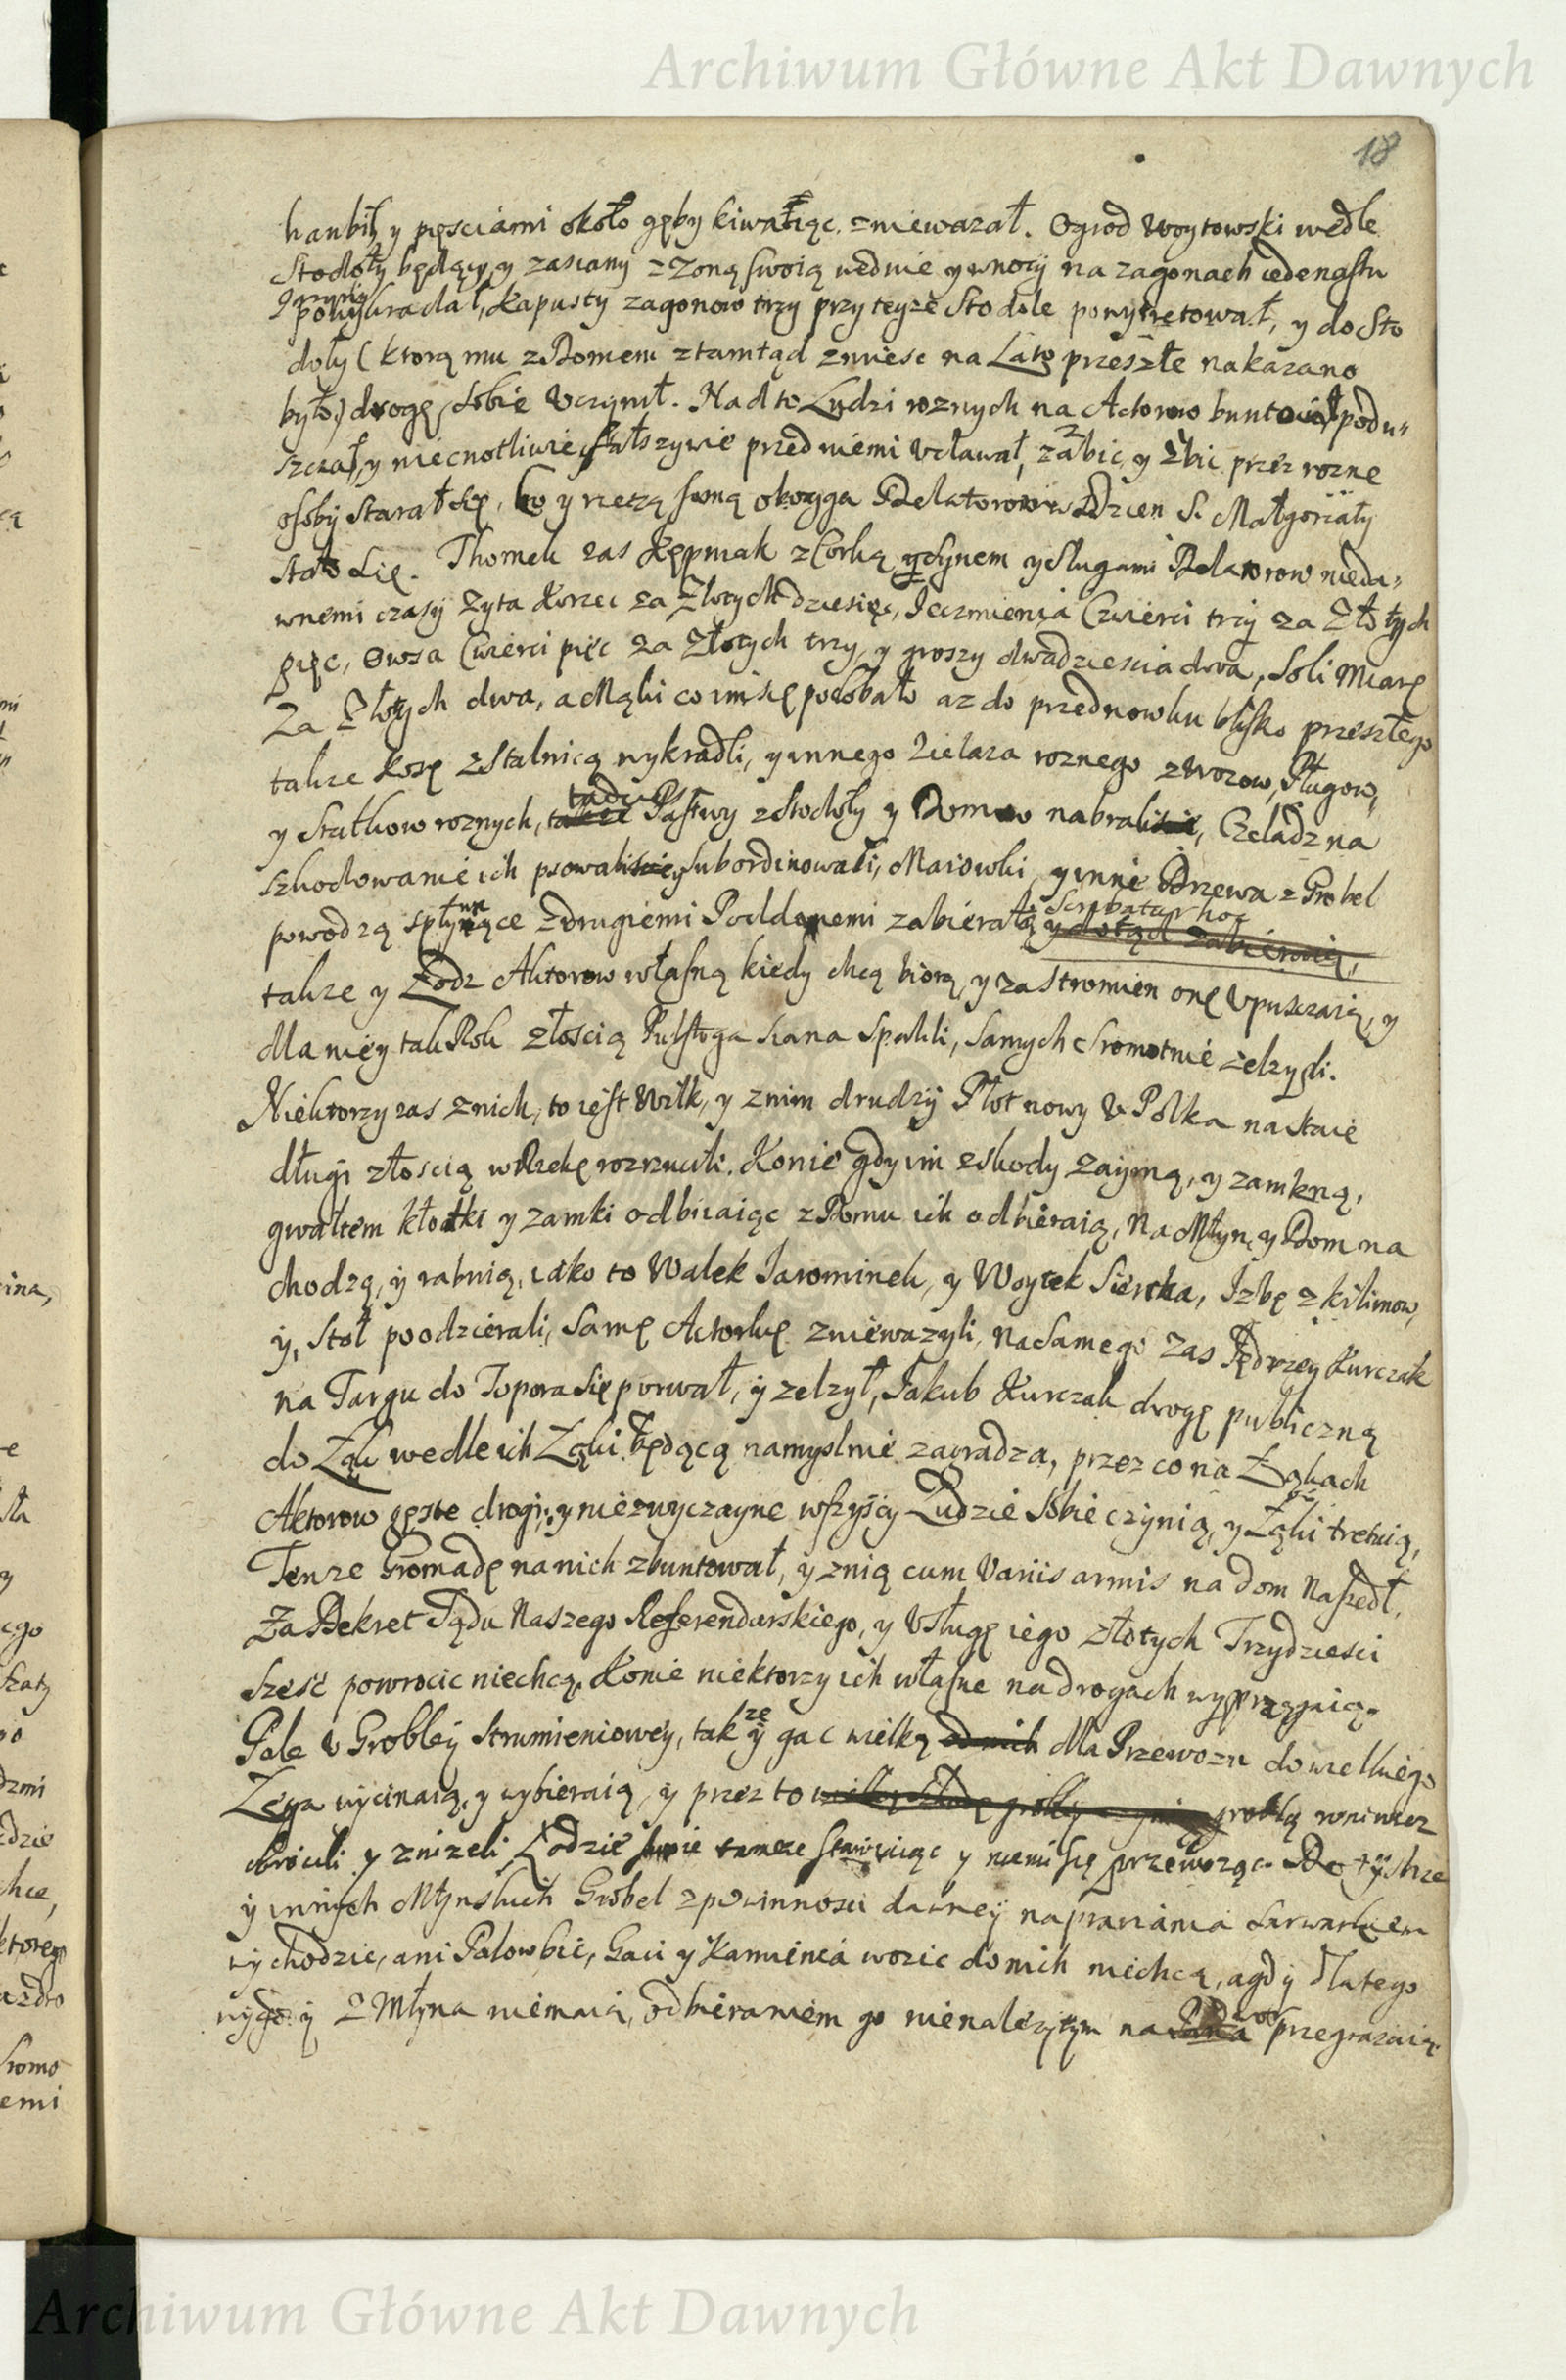 Archiwum Główne Akt Dawnych
18
hanbił, y pęsciami około gęby kiwaiąc zniewazał. Ogrod Woytowski wedle
Stodoły będący, y zasiany z zoną swoią wednie y wnocy na zagonach iedenastu
powykradał, Kapusty zagonow trzy przy teyze Stodole powytretował, y do Sto
doły (ktorą mu z Domem ztamtąd zniesc na Lato przeszłe nakazano
było) drogę sobie Vczynił. Nadto Ludzi roznych na Actorow buntował podu„
szczał, y niecnotliwie, fałszywie przed niemi Vdawał, zabic, y zbic przez rozne
osoby starał się, co y rzeczą samą Delatorow w Dzien S. Małgorzaty
stało się. Thomek zas Kępniak z Corką y Synem y Sługami Delatorow nieda„
wnemi czasy zyta Korzec za Złotych dziesięc, Ięczmienia Cwierci trzy za Złotych
pięc, Owsa Cwierci pięc za Złotych trzy, y groszy dwadziescia dwa, Soli Miarę
Za Złotych dwa, a Mąki co im się podobało az do przednowku blisko przeszłego
takze Kosę z Stalnicą wykradli, y innego zielaza roznego z Wozow, Pługow,
y Statkow roznych, tudziesz Pastwy z Stodoły y Domow nabrali, Czeladz na
szkodowanie ich psowali, y subordinowali, Maiowki, y inne Drzewa z Grobel
powodzą spłynące z drugiemi Poddanemi zabierali, Scribatur hoc
y dotąd zabieraią,
takze y Łodz Aktorow własną kiedy chcą biorą, y za stromien onę Vpusczaią, y
dla niey tak Rok złością Puł stoga siana spalili, samych sromotnie zelzyli.
Niektorzy zas z nich, to iest Wilk, y z nim drudzy Płot nowy V Polka na staie
długi złością w Rzekę rozrzucili. Konie gdy im z szkody zaymą, y zamkną,
gwałtem kłotki y zamki odbiiaiąc z Domu ich odbieraią, Na Młyn, y Dom na
chodzą, y rabuią, iako to Walek Iarominek, y Woytek Sierka, Izbę z kilimow,
y, Stoł poodzierali, Samę Actorkę zniewazyli, Na Samego zas Iędrzey Kurczak
na Targu do Topora się porwał, y zelzył, Iakub Kurczak drogę publiczną
do Łąk wedle ich Łąki będącą namyslnie zagradza, przez co na Łąkach
Aktorow gęste drogi, y niezwyczayne wszyscy Ludzie sobie czynią, y Łąki tretuią,
Tenze Gromadę na nich zbuntował, y z nią cum Variis armis na dom Naszedł,
Za Dekret Sądu Naszego Referendarskiego, y Vsługę iego złotych Trzydziesci
szesc powrocic niechcą. Konie niektorzy ich własne na drogach wyprzęgaią.
Pale V Grobley Strumieniowey, takze y gac wielką od nich dla Przewozu do wielkiego
Łęga wycinaią, y wybieraią, y przez to groblą wniwecz
obrocili y znizeli, Łodzie swoie tamze stawiaiąc y niemi się przewoząc. Do tyskze
y innych Młynskich Grobel z powinnosci dawney naprawiania szarwarkiem
wychodzic, ani Palow bic, Gaci y Kamienia wozic do nich niechcą, a gdy dlatego
wygody z Młyna niemaią, odbieraniem go nienalezytym przegrazaią.
Archiwum Główne Akt Dawnych